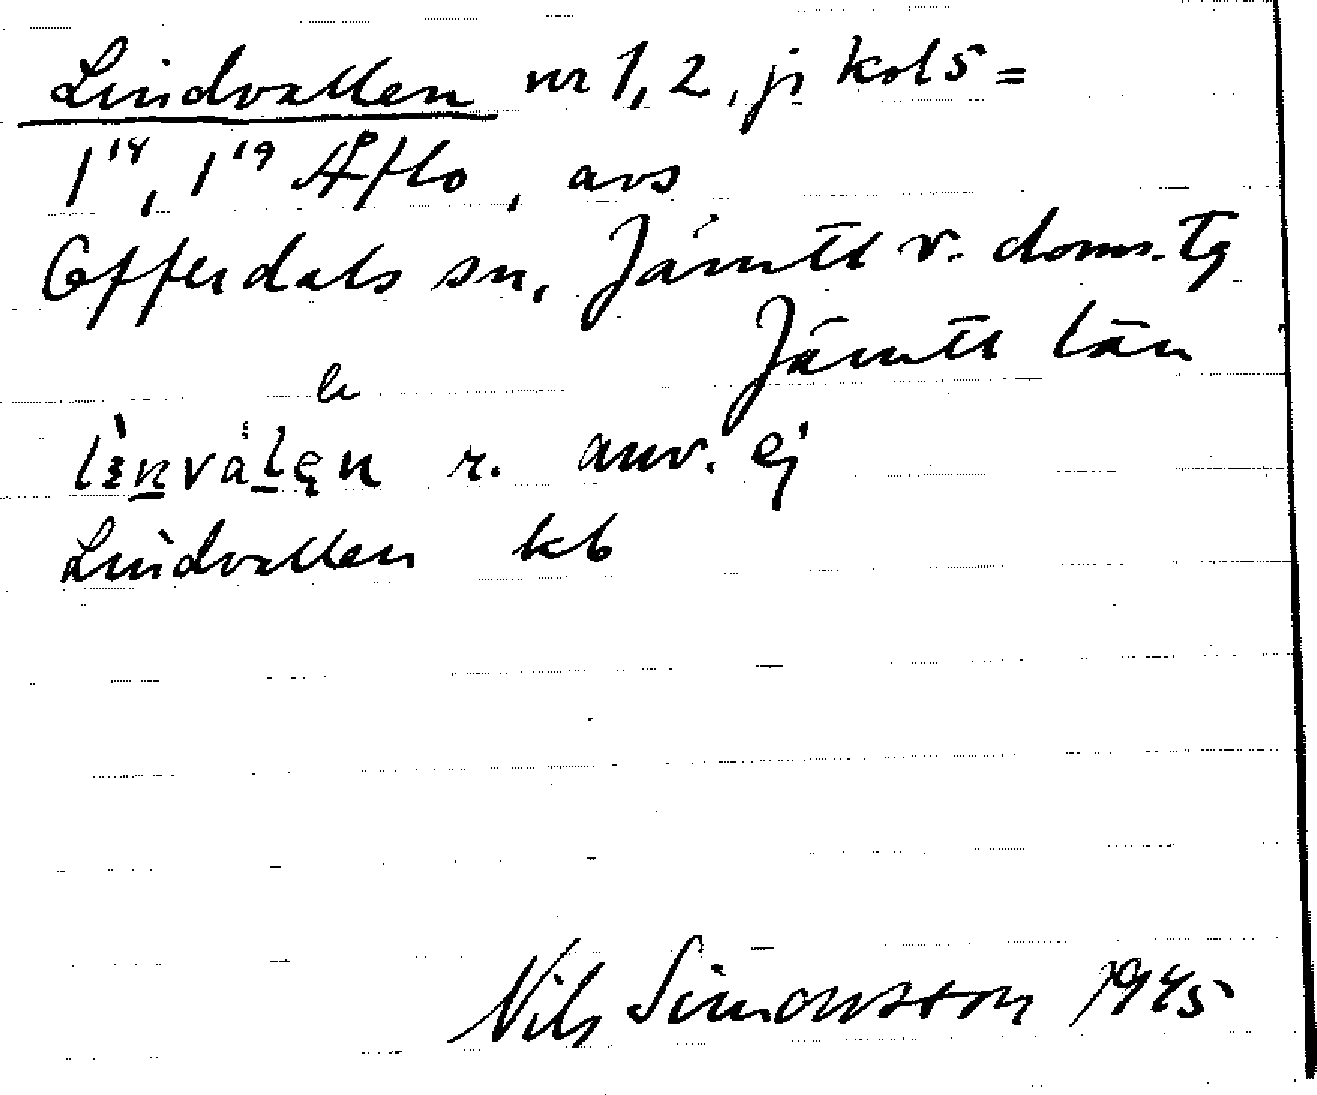 Lindvallen nr 1, 2, ji kol 5 =
1¹⁴, 1¹⁹ Åflo, avs
Offerdals sn, Jämtl v. doms. tg
Jämtl län
le
r. anv. ej
Lindvallen kb
Nils Simonsson 1945